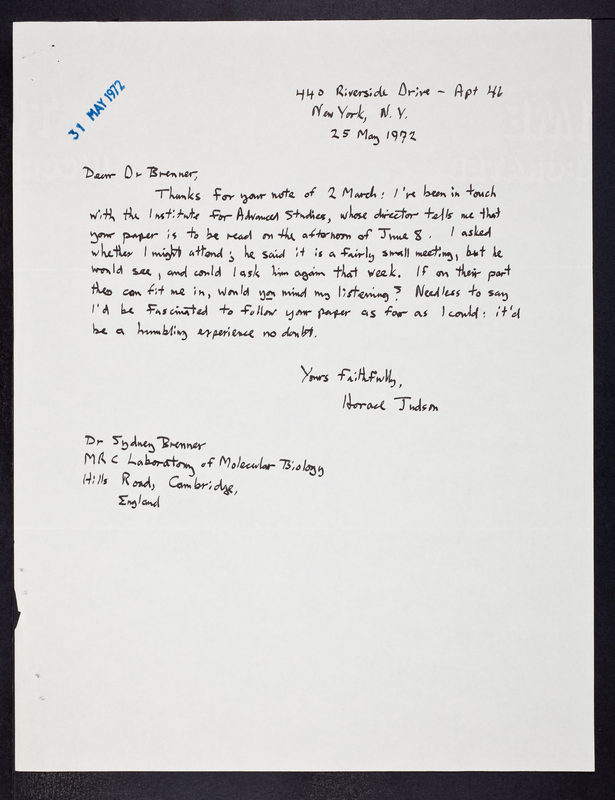 31 MAY 1972
440 Riverside Drive – Apt 46
New York, N.Y.
25 May 1972
Dear Dr Brenner,
Thanks for your note of 2 March: I've been in touch
with the Institute for Advanced Studies, whose director tells me that
your paper is to be read on the afternoon of June 8. I asked
whether I might attend; he said it is a fairly small meeting, but he
would see, and could I ask him again that week. If on their part
they can fit me in, would you mind my listening? Needless to say
I'd be fascinated to follow your paper as far as I could: it'd
be a humbling experience no doubt.
Yours faithfully,
Horace Judson
Dr Sydney Brenner
MRC Laboratory of Molecular Biology
Hills Road, Cambridge,
England